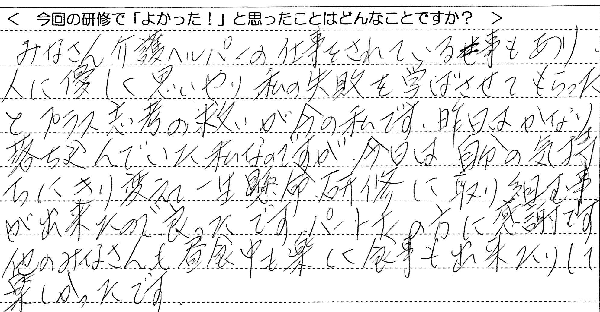 < 今回の研修で「よかった！」と思ったことはどんなことですか？ >
みなさん介護ヘルパーの仕事をされている事もあり、
人に優しく思いやり私の失敗を学ばさせてもらった
とプラス志考の救いが今の私です。昨日はかなり
落ち込んでいた私なのですが今日は自分の気持
ちにきり変えて一生懸命研修に取り組む事
が出来たので良かったです。パートナーの方に感謝です
他のみなさんも昼食中も楽しく食事も出来たりして
楽しかったです。